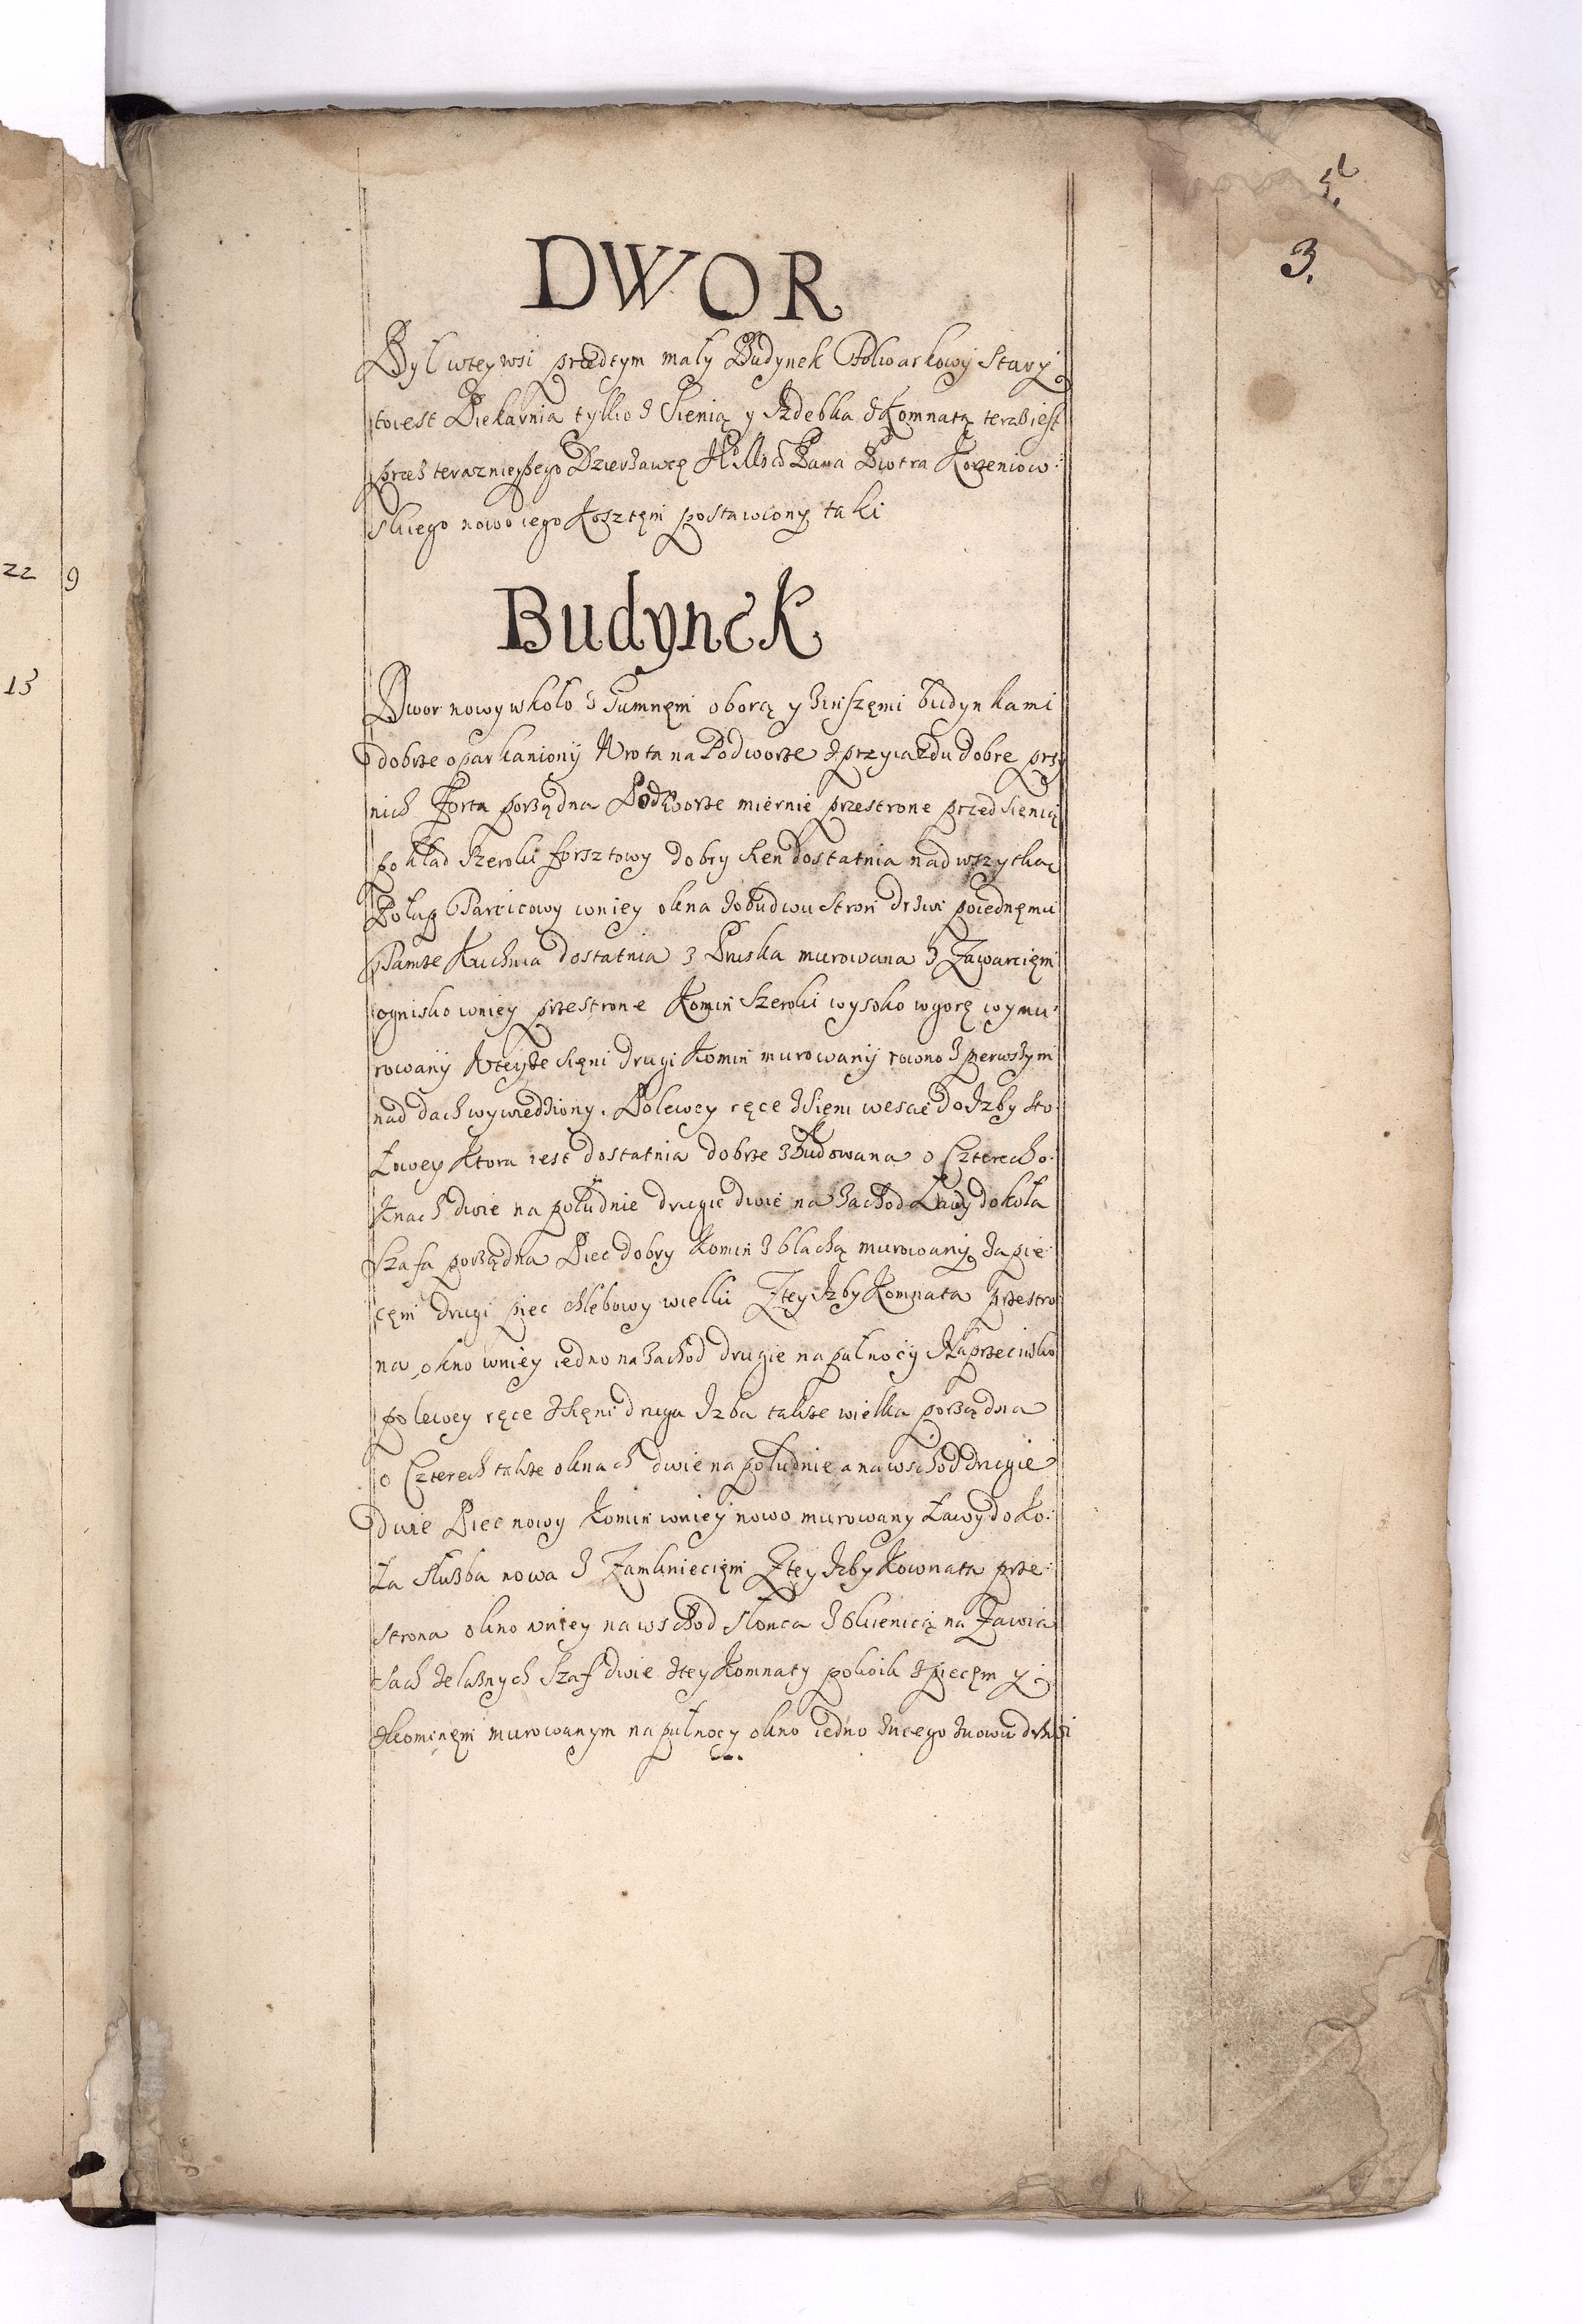 5.
3.
DWOR
Był wtey wsi przedtym mały Budynek Folwarkowy Stary
toiest Piekarnia tylko z Sienią y Izdebka z Komnatą teraz iest
przez teraznieyszego Dzierzawcę Pana Piotra Korzeniow:
skiego nowo iego Kosztęm postawiony taki
Budynek
Dwor nowy wkoło z Gumnęm oborą y zinszęmi budynkami
dobrze oparkaniony Wrota na Podworze z przyiazdu dobre przy
nich Forta porządna Podworze miernie przestrone przed sienią
pokład Szeroki forsztowy dobry sien dostatnia nad wszytką
Pułap Tarcicowy wniey okna zobudwu stron drzwi poiednęmu
Tamże Kuchnia dostatnia z Pruska murowana z Zawarcięm
ognisko wniey przestrone Komin Szeroki wysoko wgorę wymu:
rowany Wteyże sięni drugi Komin murowany rowno z pierwszym
nad dach wywiedziony. Polewey ręce zsięni weście do Izby sto
łowey Ktora iest dostatnia dobrze zbudowana o Czterech o:
knach dwie na południe drugie dwie na zachod Ławy dokoła
Szafa porządna Piec dobry Komin z blachą murowany, Za pie:
cęm drugi piec chlebowy wielki Ztey Izby Komnata przestro:
na, okno wniey iedno na zachod drugie na pułnocy Naprzeciwko
po lewey ręce zsięni druga Izba także wielka porządna
o Czterech także oknach dwie na południe a na wschod drugie
dwie Piec nowy Komin wniey nowo murowany Ławy doko:
ła służba nowa z Zamkniecięm Ztey Izby Kownata prze:
strona okno wniey na wschod słonca z okienicą na Zawia
sach żelaznych Szaf dwie ztey Komnaty pokoik z piecęm y
Kominęm murowanym na pułnocy okno iedno zniego znowu drzwi
22 9
13